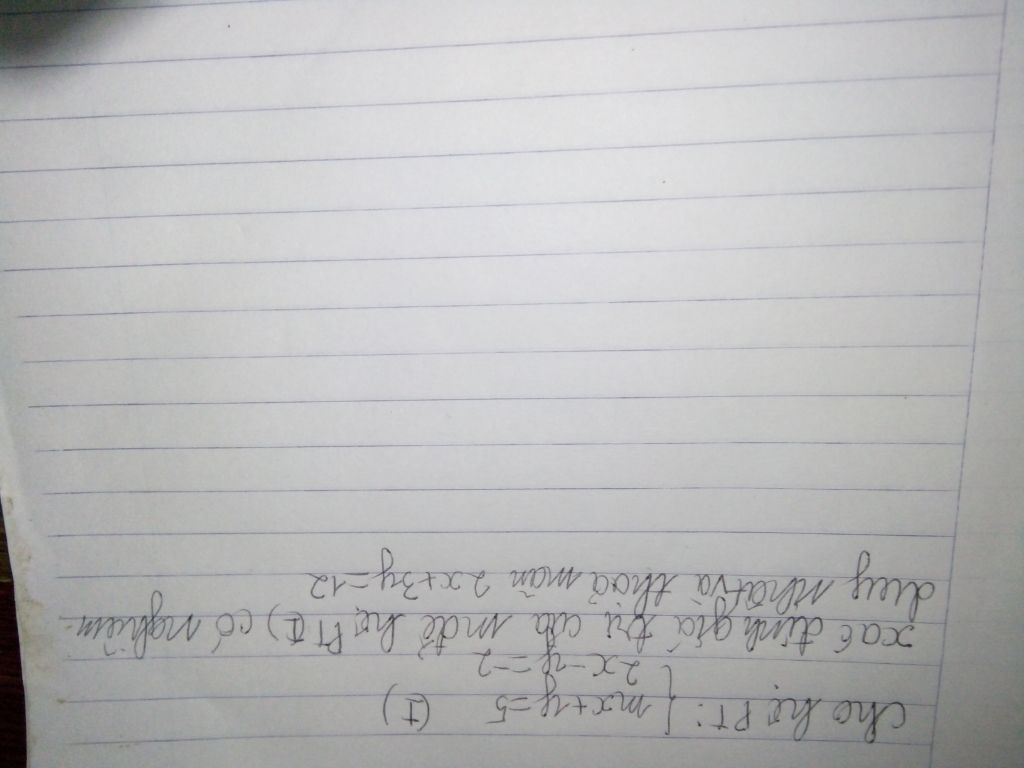 cho hệ PT: { mx+y=5 (I)
2x-y=-2
xác định giá trị của m để hệ PT (I) có nghiệm
duy nhất và thoả mãn 2x+3y=12